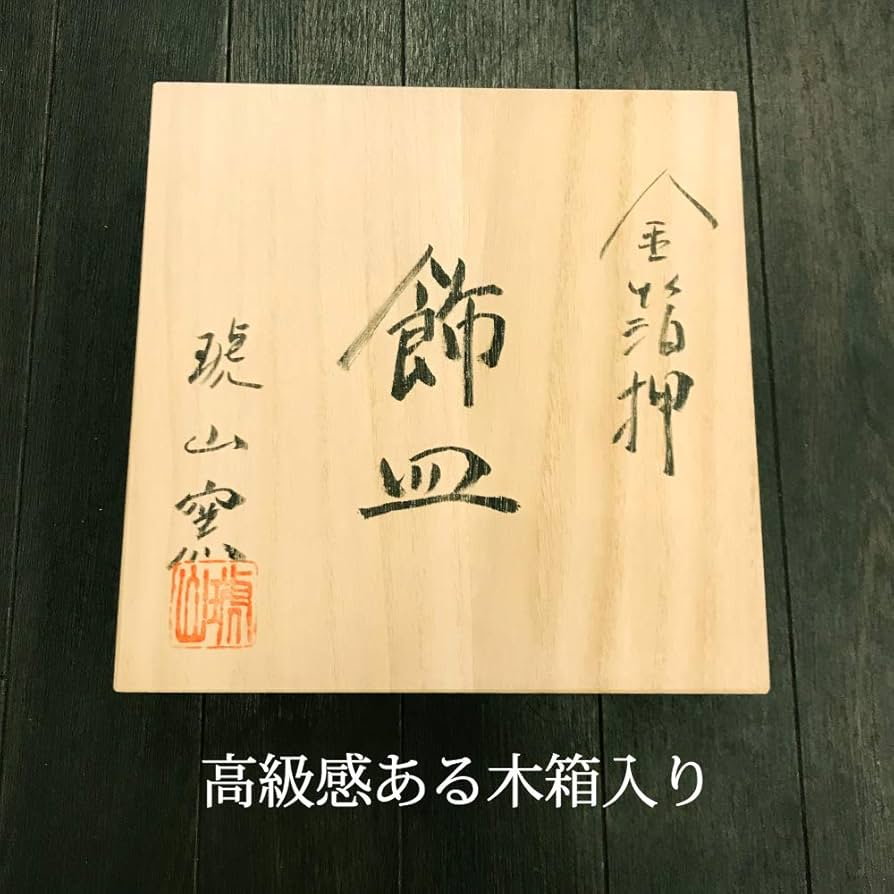 金箔押
飾皿
琥山窯
琥山
高級感ある木箱入り